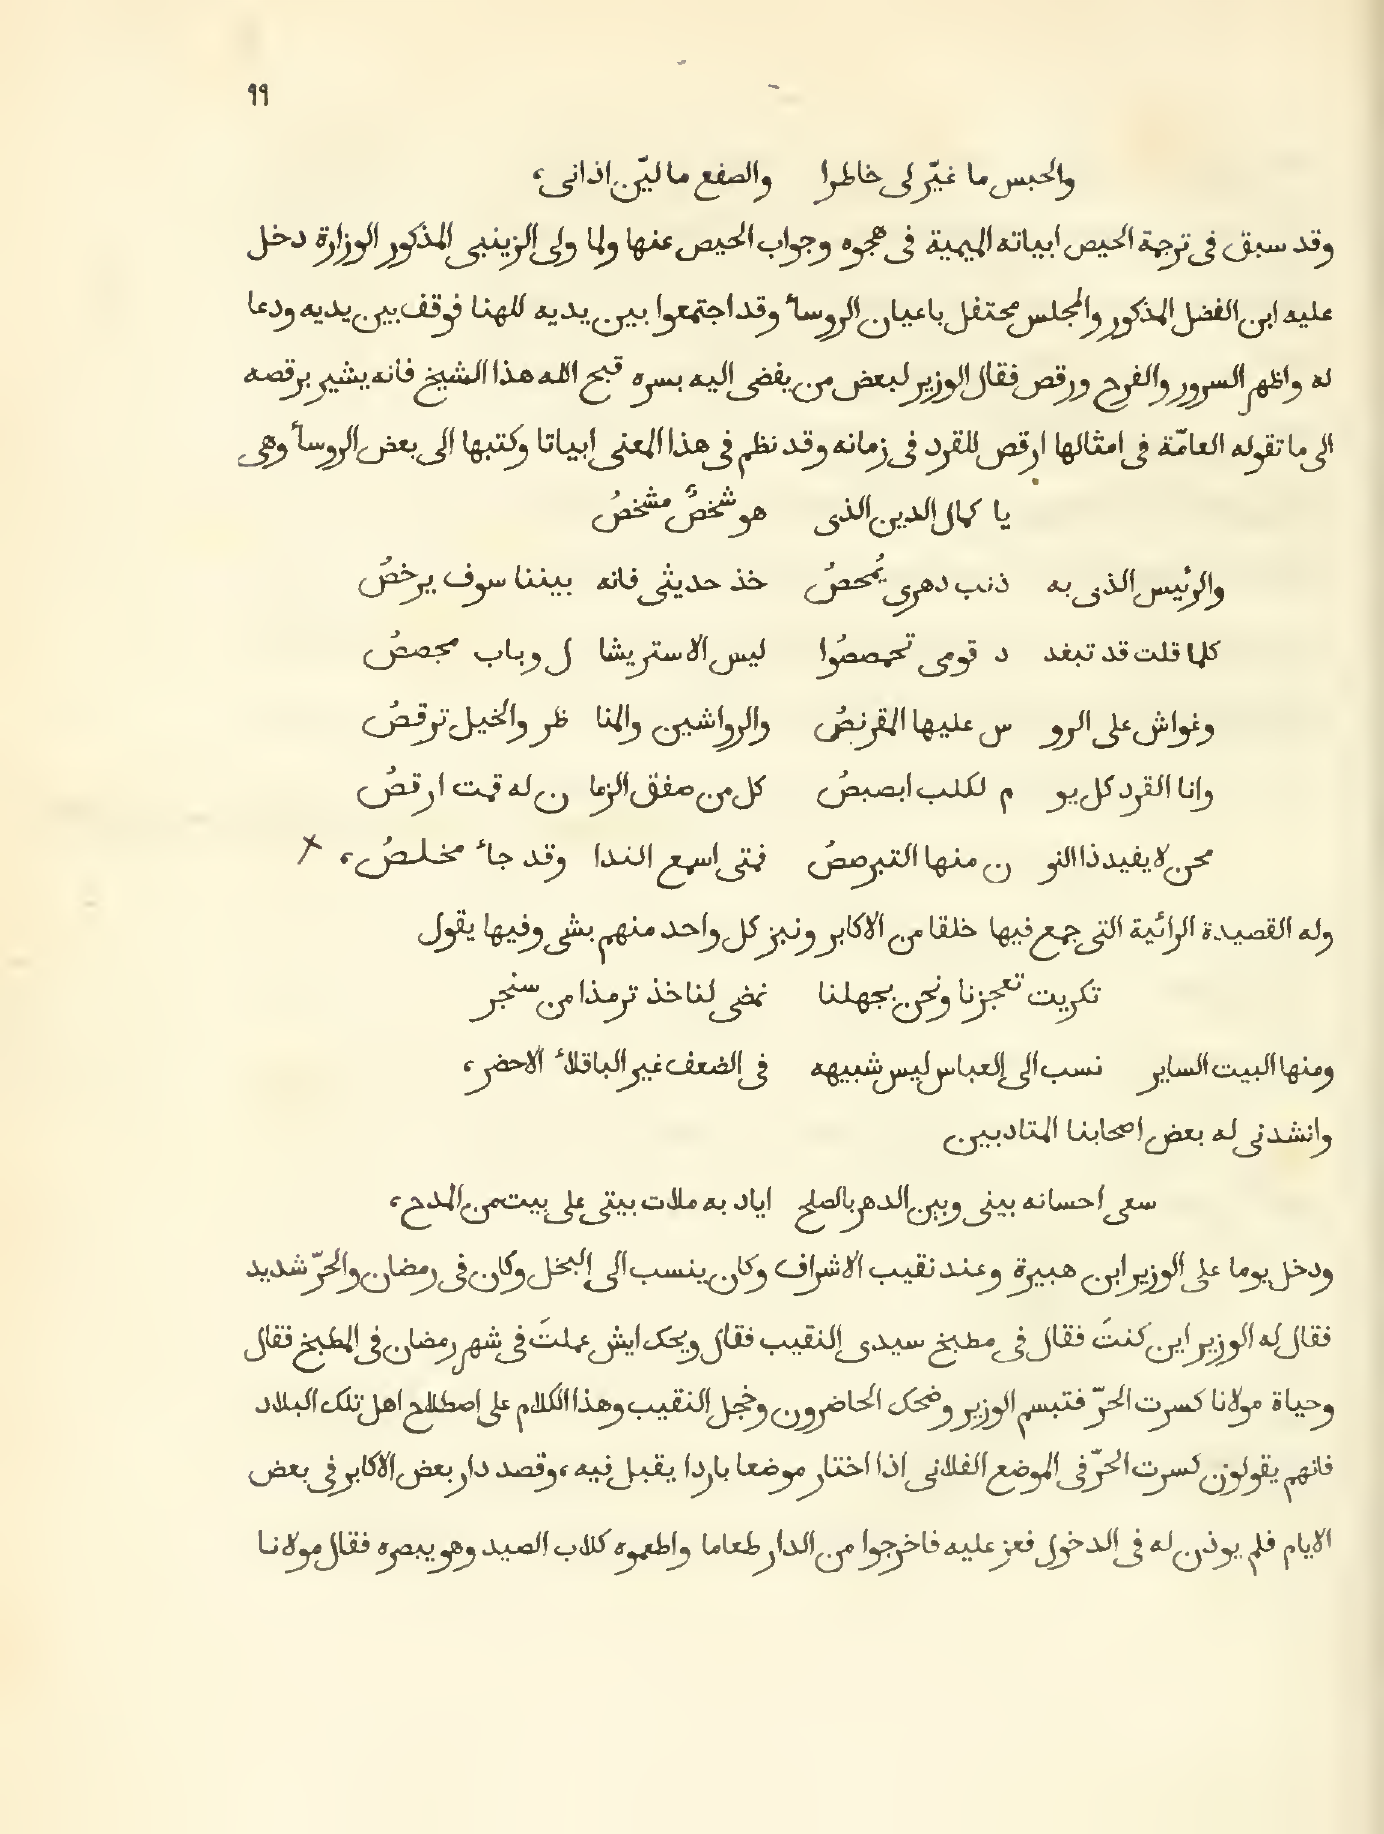 ٩٩
والحبس ما غيّر لى خاطرا والصفع ما ليّن اذانى،
وقد سبق فى ترجمة الحيص ابياته الميمية فى هجوه وجواب الحيص عنها ولما ولى الزينبى المذكور الوزارة دخل
عليه ابن الفضل المذكور والمجلس محتفل باعيان الروسأ وقد اجتمعوا بين يديه للهنا فوقف بين يديه ودعا
له واظهر السرور والفرح ورقص فقال الوزير لبعض من يفضى اليه بسره قبح الله هذا الشيخ فانه يشير برقصه
الى ما تقوله العامّة فى امثالها ارقص للقرد فى زمانه وقد نظم فى هذا المعنى ابياتا وكتبها الى بعض الروسأ وهى
يا كمال الدين الذى هو شخصٌ مشخصُ
والرئيس الذى به ذنب دهرى يُمحصُ خذ حديثى فانه بيننا سوف يرخصُ
كلما قلت قد تبغد د قومى تحمصصُوا ليس الا ستر يشا ل وباب مجصصُ
وغواش على الرو س عليها المقرنصُ والرواشين والمنا ظر والخيل ترقصُ
وانا القرد كل يو م لكلب ابصبصُ كل من صفق الزما ن له قمت ارقصُ
محن لا يفيد ذا النو ن منها التبرصصُ فمتى اسمع الندا وقد جاء مخلصُ،
وله القصيدة الرائية التى جمع فيها خلقا من الاكابر ونبز كل واحد منهم بشى وفيها يقول
تكريت تعجزنا ونحن بجهلنا نمضى لنا خذ ترمذا من سنجر
ومنها البيت الساير نسب الى العباس ليس شبيهه فى الضعف غير الباقلاء الاخضر،
وانشدنى له بعض اصحابنا المتادبين
سعى احسانه بينى وبين الدهر بالصلح اياد به ملات بيتى على بيت من المدح،
ودخل يوما على الوزير ابن هبيرة وعند نقيب الاشراف وكان ينسب الى البخل وكان فى رمضان والحرّ شديد
فقال له الوزير اين كنتَ فقال فى مطبخ سيدى النقيب فقال ويحك ايش عملتَ فى شهر رمضان فى المطبخ فقال
وحياة مولانا كسرت الحرّ فتبسم الوزير وضحك الحاضرون وخجل النقيب وهذا الكلام على اصطلاح اهل تلك البلاد
فانهم يقولون كسرت الحرّ فى الموضع الفلانى اذا اختار موضعا باردا يقبل فيه، وقصد دار بعض الاكابر فى بعض
الايام فلم يوذن له فى الدخول فعز عليه فاخرجوا من الدار طعاما واطعموه كلاب الصيد وهو يبصره فقال مولانا